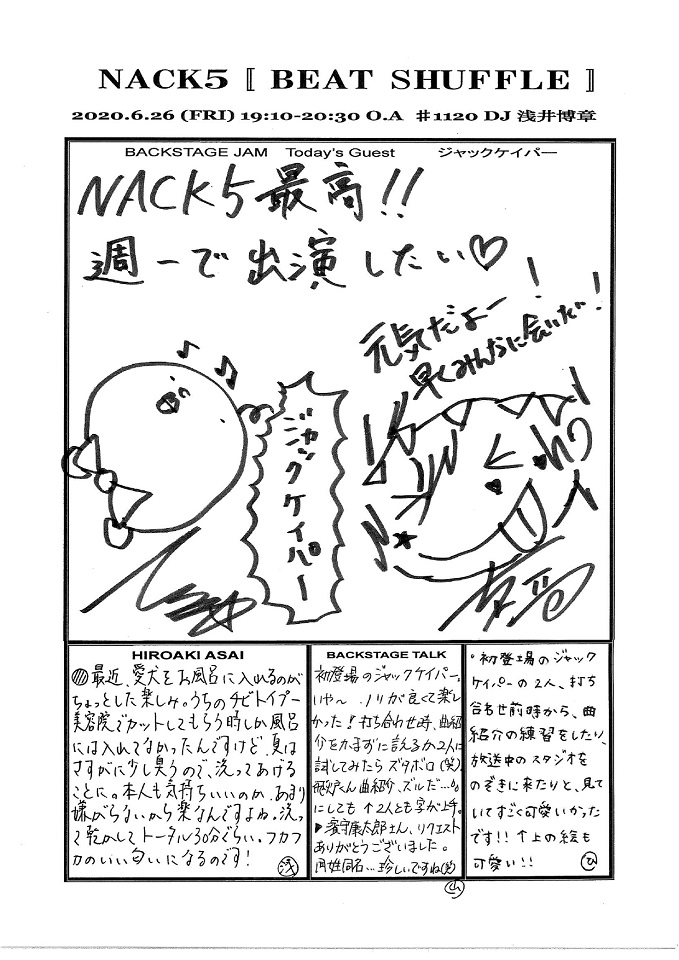 NACK5 〚 BEAT SHUFFLE 〛
2020.6.26 (FRI) 19:10-20:30 O.A #1120 DJ 浅井博章
BACKSTAGE JAM Today's Guest ジャックケイパー
NACK5最高!!
週一で出演したい♡
元気だよー!
早くみんなに会いたい!
ジャックケイパー
HIROAKI ASAI
最近、愛犬をお風呂に入れるのが
ちょっとした楽しみ。うちのチビトイプー
美容院でカットしてもらう時しか風呂
には入れてなかったんですけど、夏は
さすがに少し臭うので、洗ってあげる
ことに。本人も気持ちいいのか、あまり
嫌がらないから楽なんですよね。洗っ
て乾かしてトータル30分ぐらい。フカフ
カのいい匂いになるのです!
浅
BACKSTAGE TALK
初登場のジャックケイパー。
いや〜ノリが良くて楽し
かった!打ち合わせ時、曲紹
介をカまずに言えるか2人に
試してみたらズタボロ(笑)
くん曲紹介、ズルだ…。
にしても↑2人とも字が上手。
▶愛守康太郎さん、リクエスト
ありがとうございました。
同姓同名…珍しいですね(笑)
山
・初登場のジャック
ケイパーの2人、打ち
合わせ前時から、曲
紹介の練習をしたり、
放送中のスタジオを
のぞきに来たりと、見て
いてすごく可愛いかった
です!!↑上の絵も
可愛い!!
ひ